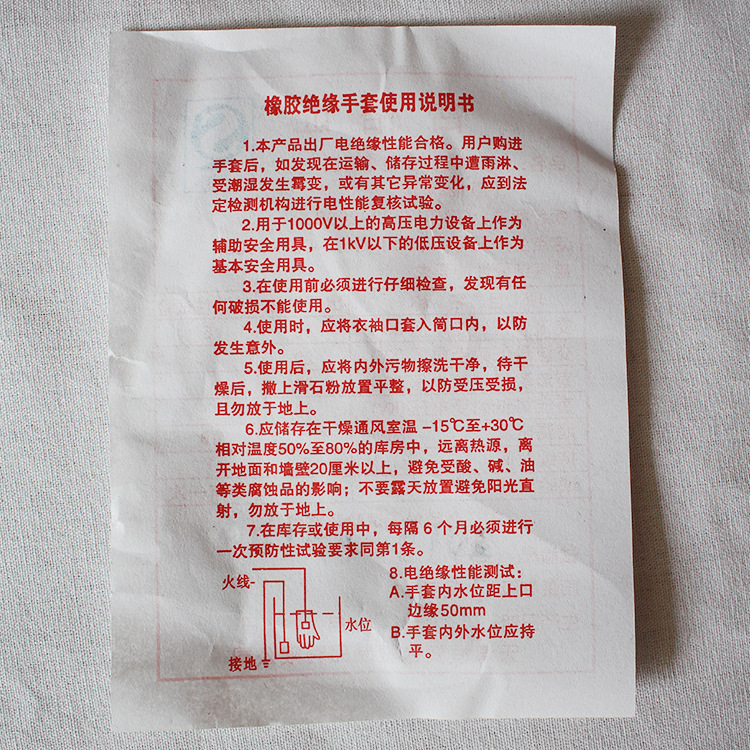 橡胶绝缘手套使用说明书
1.本产品出厂电绝缘性能合格。用户购进
手套后，如发现在运输、储存过程中遭雨淋、
受潮湿发生霉变，或有其它异常变化，应到法
定检测机构进行电性能复核试验。
2.用于1000V以上的高压电力设备上作为
辅助安全用具，在1kV以下的低压设备上作为
基本安全用具。
3.在使用前必须进行仔细检查，发现有任
何破损不能使用。
4.使用时，应将衣袖口套入筒口内，以防
发生意外。
5.使用后，应将内外污物擦洗干净，待干
燥后，撒上滑石粉放置平整，以防受压受损，
且勿放于地上。
6.应储存在干燥通风室温 -15℃至+30℃
相对温度50%至80%的库房中，远离热源，离
开地面和墙壁20厘米以上，避免受酸、碱、油
等类腐蚀品的影响；不要露天放置避免阳光直
射，勿放于地上。
7.在库存或使用中，每隔 6 个月必须进行
一次预防性试验要求同第1条。
火线
水位
接地
8.电绝缘性能测试：
A.手套内水位距上口
边缘50mm
B.手套内外水位应持
平。